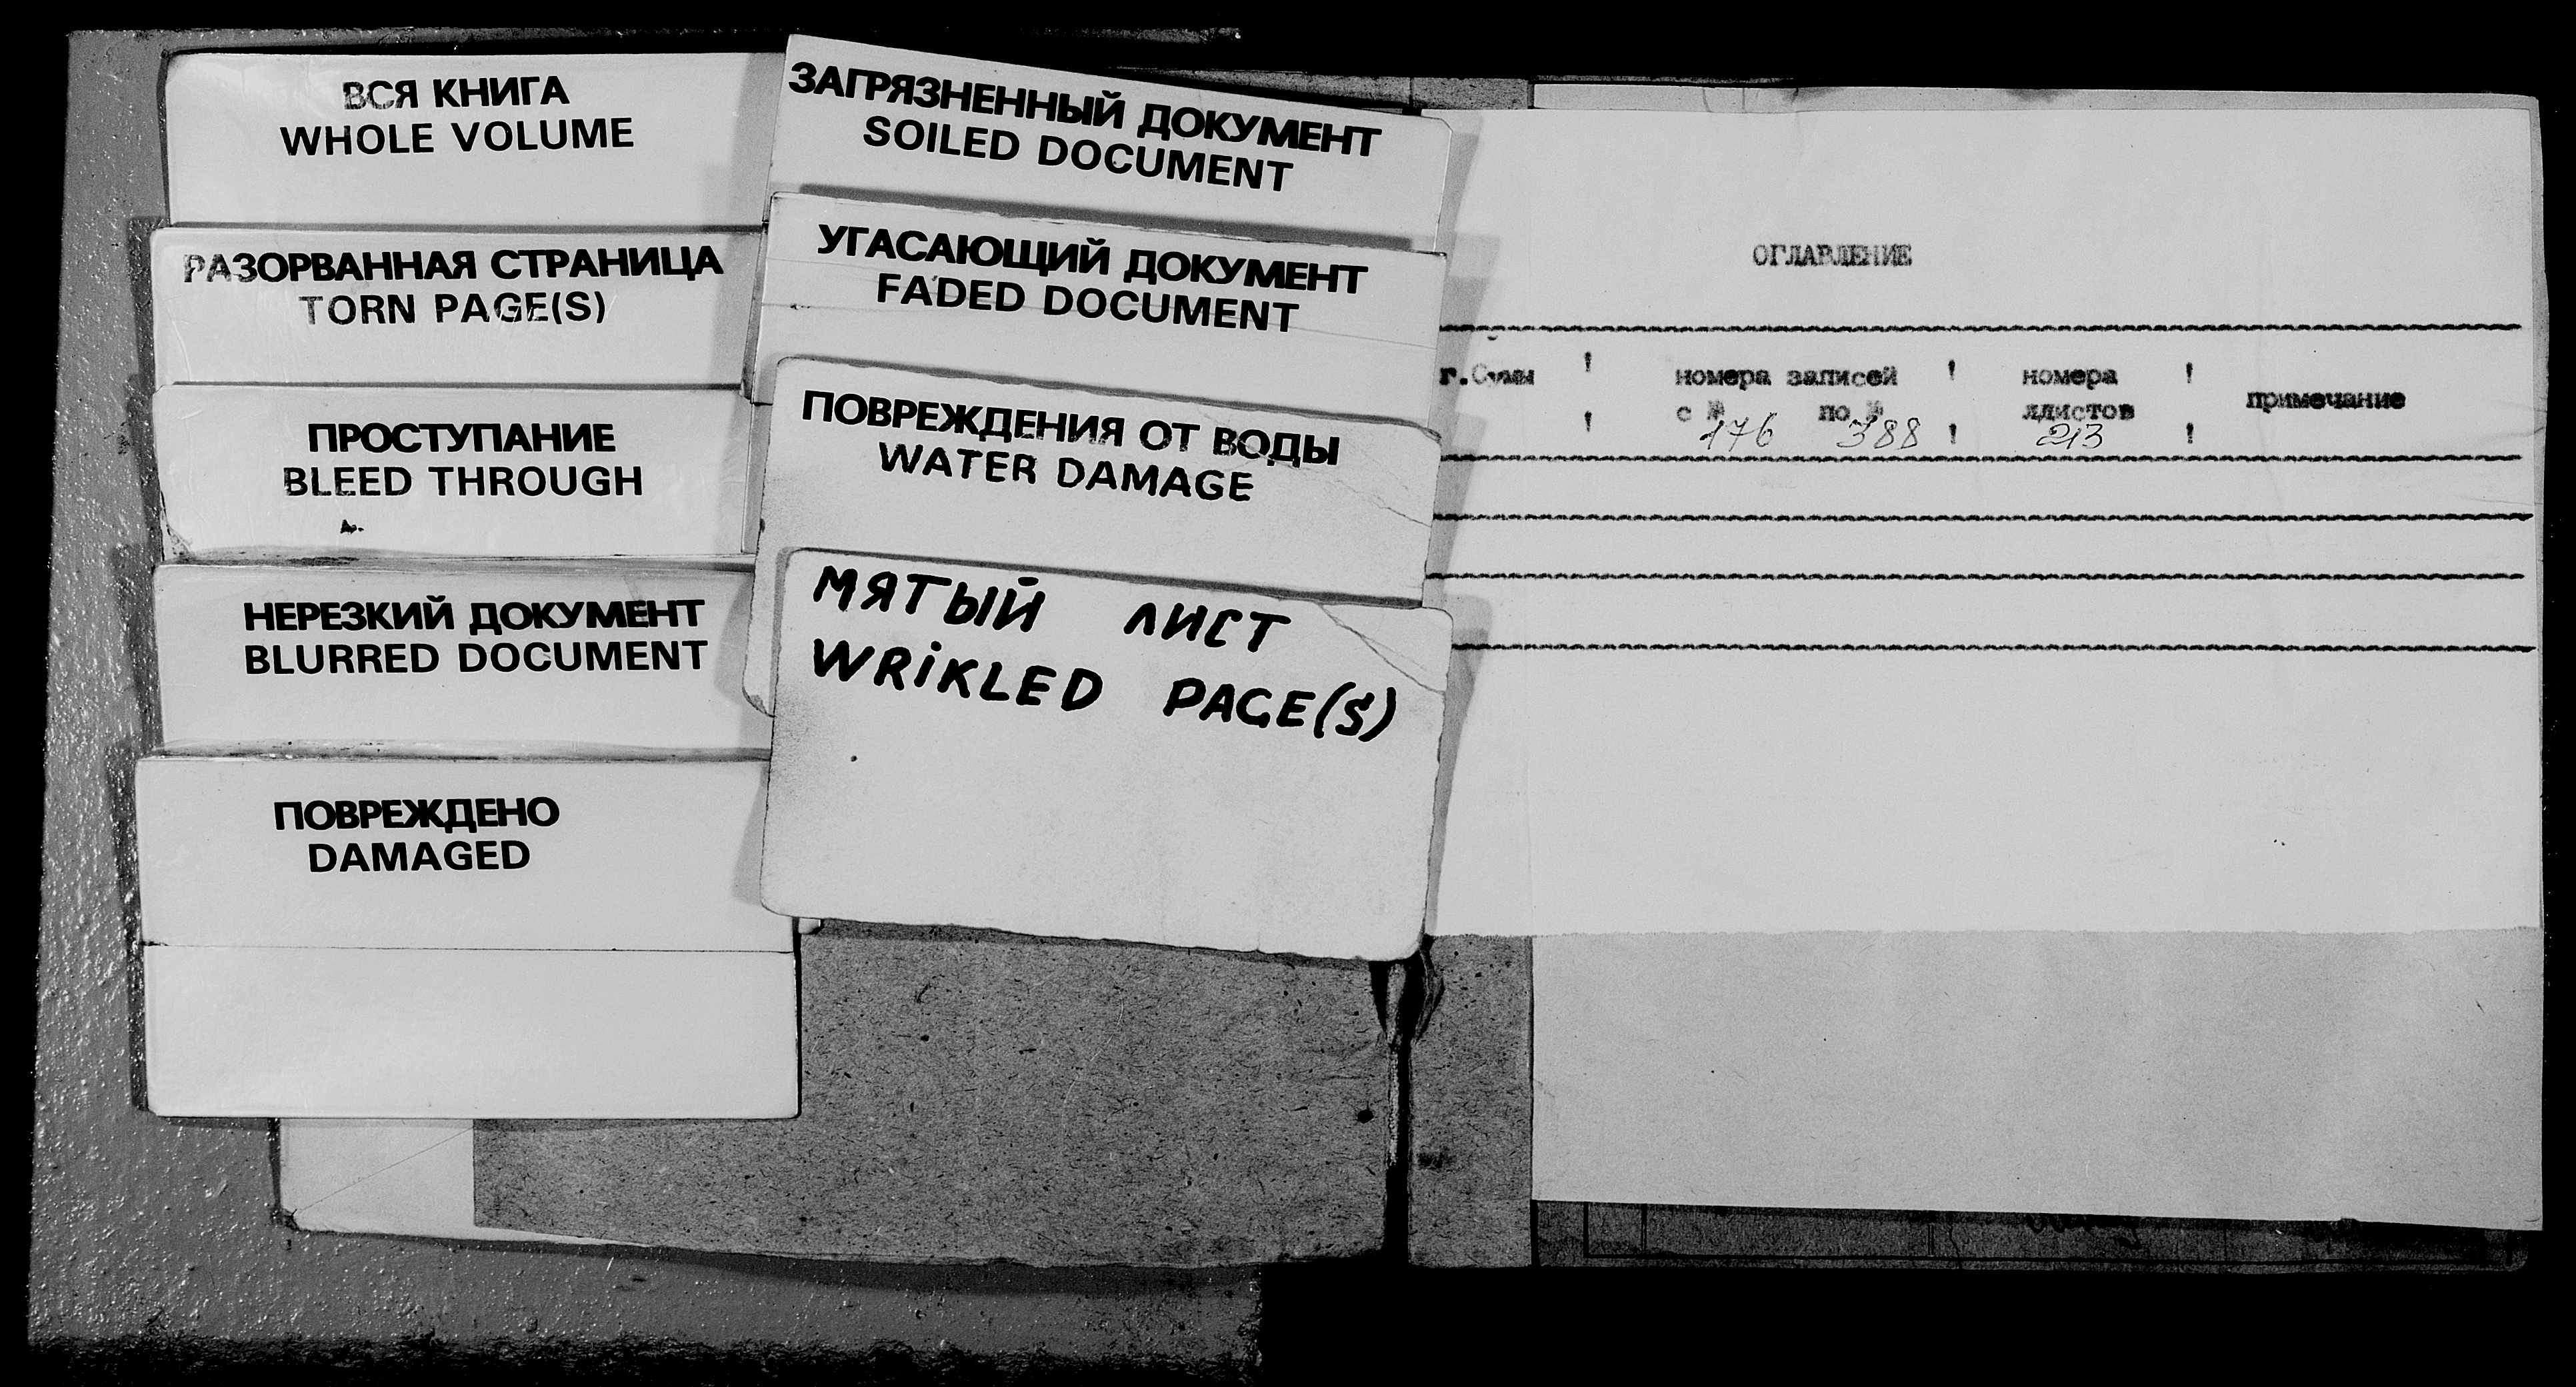 ВСЯ КНИГА
WHOLE VOLUME
РАЗОРВАННАЯ СТРАНИЦА
TORN PAGE(S)
ПРОСТУПАНИЕ
BLEED THROUGH
НЕРЕЗКИЙ ДОКУМЕНТ
BLURRED DOCUMENT
ПОВРЕЖДЕНО
DAMAGED
ЗАГРЯЗНЕННЫЙ ДОКУМЕНТ
SOILED DOCUMENT
УГАСАЮЩИЙ ДОКУМЕНТ
FADED DOCUMENT
ПОВРЕЖДЕНИЯ ОТ ВОДЫ
WATER DAMAGE
МЯТЫЙ ЛИСТ
WRIKLED PAGE(S)
ОГЛАВЛЕНИЕ
г.Сумы ! номера записей ! номера !
с № по № лдистов примечание
! 176 388 ! 213 !